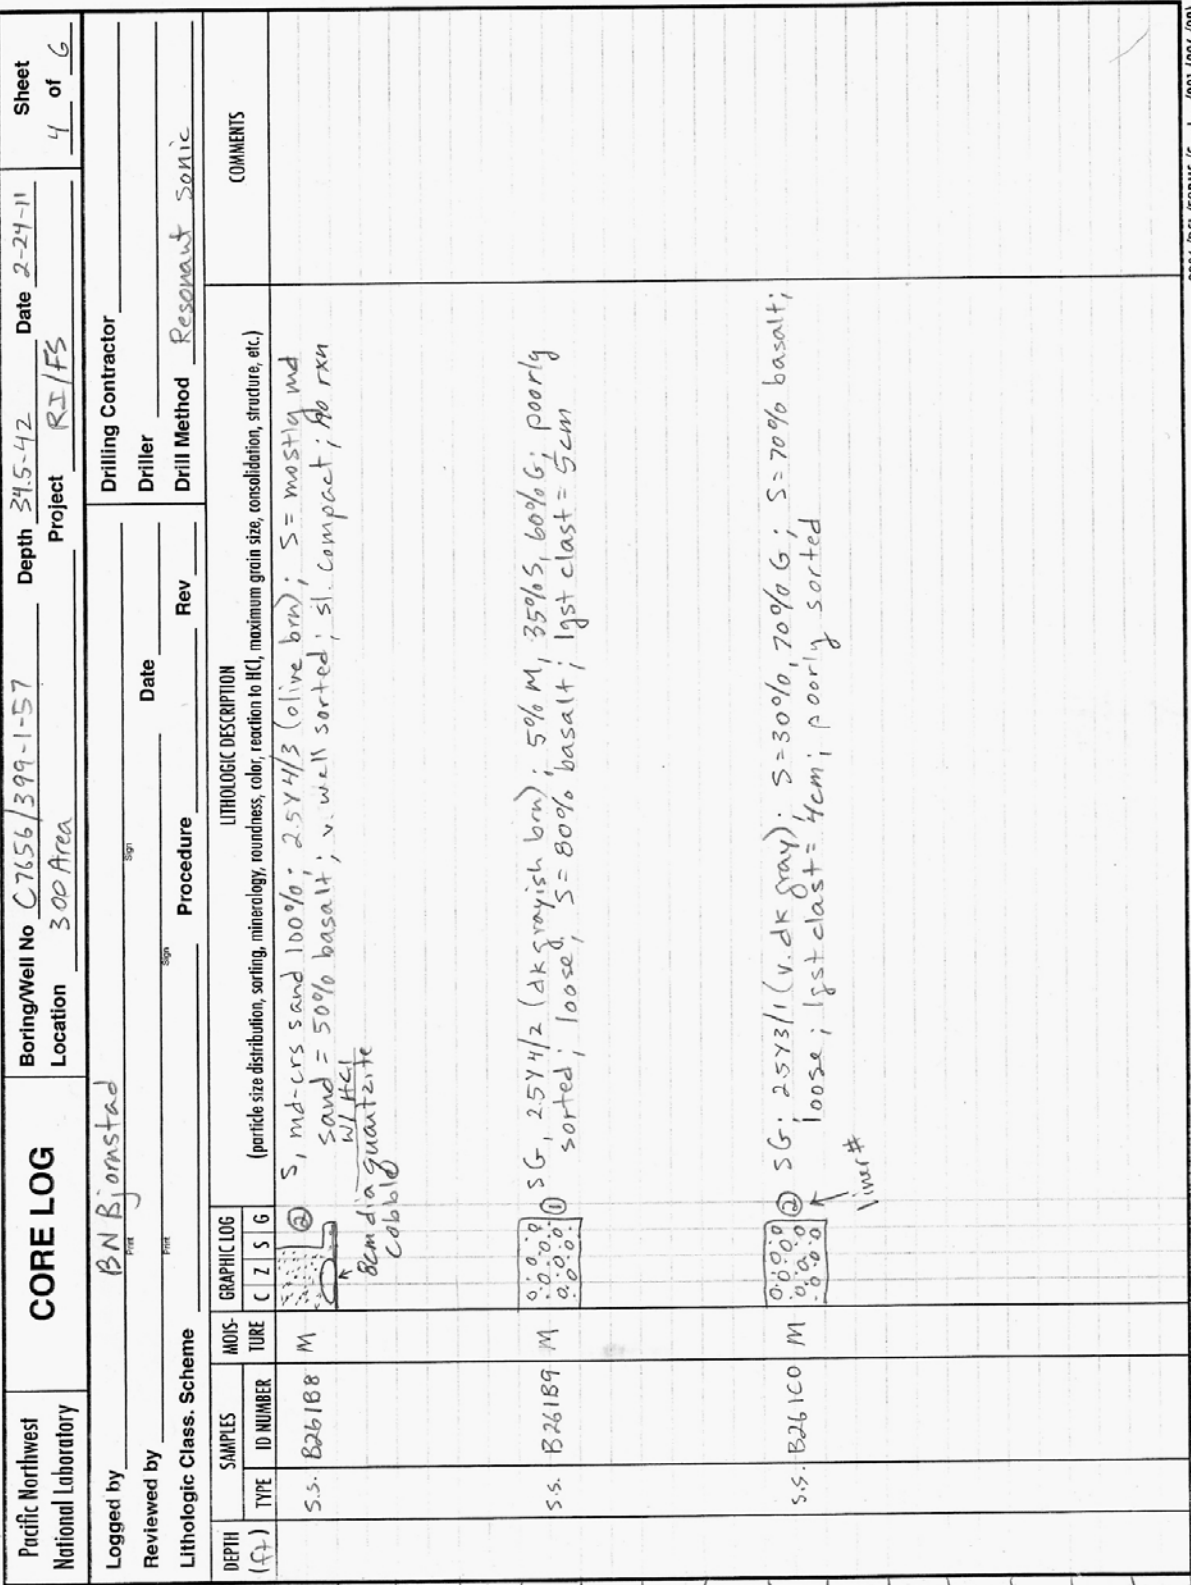 Pacific Northwest
National Laboratory
CORE LOG
Boring/Well No C7656/399-1-57 Depth 34.5-42 Date 2-24-11
Location 300 Area Project RI/FS
Sheet
4 of 6
Logged by BN Bjornstad
Print
Sign
Drilling Contractor
Reviewed by
Print
Sign
Date
Driller
Lithologic Class. Scheme
Procedure
Rev
Drill Method Resonant Sonic
DEPTH
(ft)
SAMPLES
TYPE
ID NUMBER
MOIS-
TURE
GRAPHIC LOG
C Z S G
LITHOLOGIC DESCRIPTION
(particle size distribution, sorting, mineralogy, roundness, color, reaction to HCl, maximum grain size, consolidation, structure, etc.)
COMMENTS
S.S. B261B8 M ② S, md-crs sand 100%; 2.5Y4/3 (olive brn); S = mostly md
sand = 50% basalt; v. well sorted; sl. compact; no rxn
w/ HCl
8cm dia quartzite
cobble
S.S. B261B9 M ① SG, 2.5Y4/2 (dk grayish brn); 5% M, 35% S, 60% G; poorly
sorted; loose; S = 80% basalt; lgst clast = 5cm
S.S. B261C0 M ② SG; 2.5Y3/1 (v. dk gray); S=30%, 70% G; S=70% basalt;
loose; lgst clast = 4cm; poorly sorted
liner #